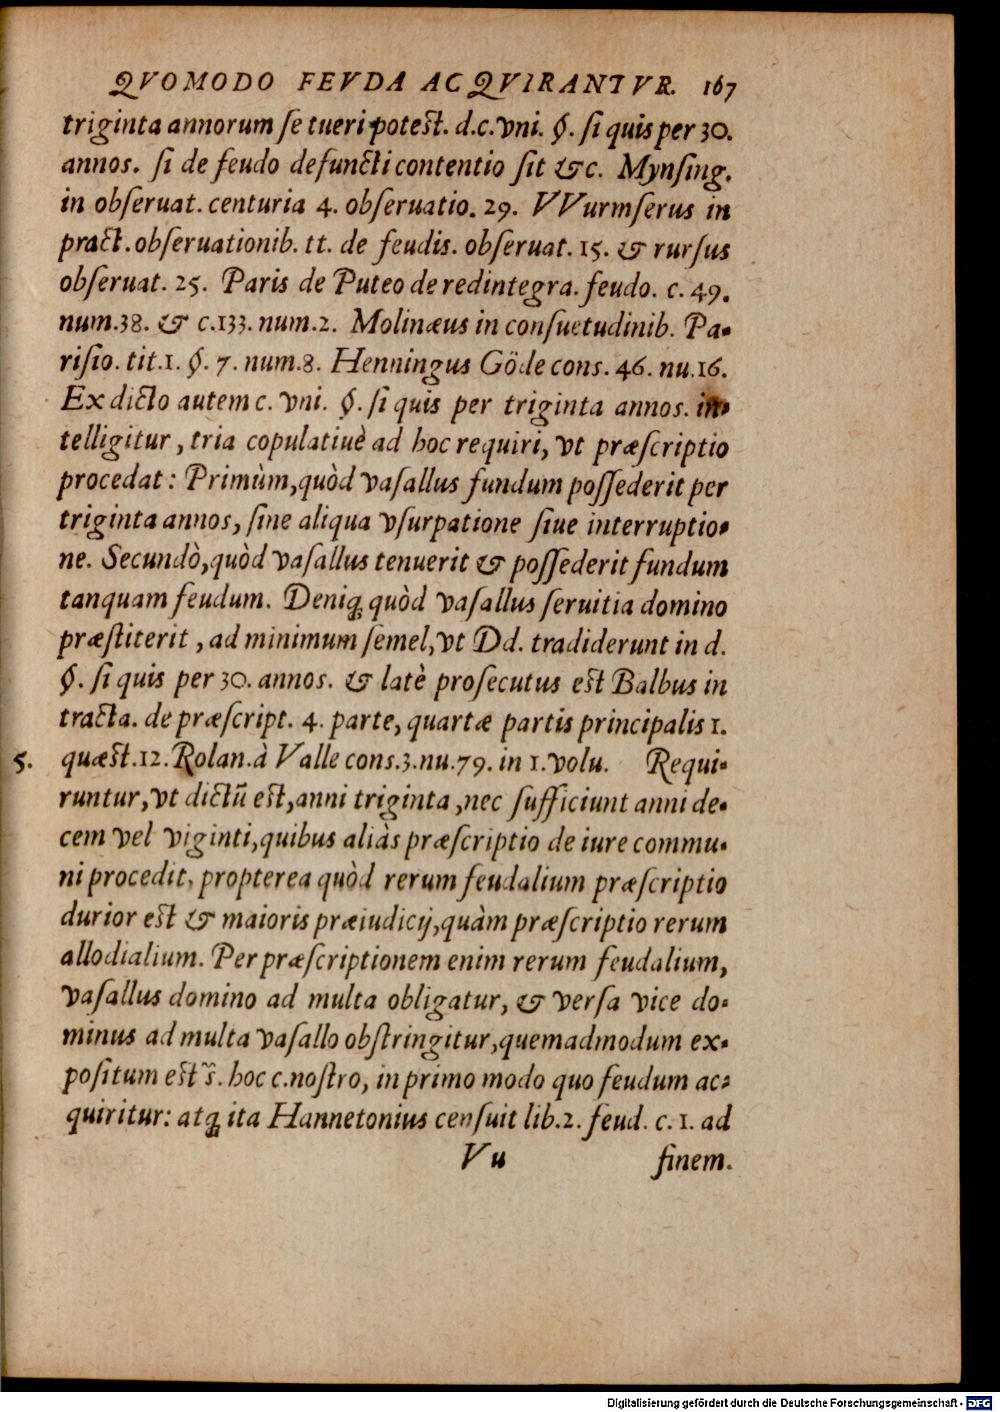 QVOMODO FEVDA ACQVIRANTVR. 167
triginta annorum ſe tueri poteſt. d.c.vni. §. ſi quis per 30.
annos. ſi de feudo defuncti contentio ſit &c. Mynſing.
in obſeruat. centuria 4. obſeruatio. 29. VVurmſerus in
pract. obſeruationib. tt. de feudis. obſeruat. 15. & rurſus
obſeruat. 25. Paris de Puteo de redintegra. feudo. c. 49.
num.38. & c.133. num.2. Molinæus in conſuetudinib. Pa-
riſio. tit.1. §. 7. num.8. Henningus Göde cons. 46. nu.16.
Ex dicto autem c. vni. §. ſi quis per triginta annos. in-
telligitur, tria copulatiuè ad hoc requiri, vt præſcriptio
procedat: Primùm, quòd vaſallus fundum poſſederit per
triginta annos, ſine aliqua vſurpatione ſiue interruptio-
ne. Secundò, quòd vaſallus tenuerit & poſſederit fundum
tanquam feudum. Deniq; quòd vaſallus ſeruitia domino
præſtiterit, ad minimum ſemel, vt Dd. tradiderunt in d.
§. ſi quis per 30. annos. & latè proſecutus eſt Balbus in
tracta. de præſcript. 4. parte, quartæ partis principalis 1.
5. quæſt.12. Rolan. à Valle cons.3. nu.79. in 1. volu. Requi-
runtur, vt dictũ eſt, anni triginta, nec ſufficiunt anni de-
cem vel viginti, quibus aliàs præſcriptio de iure commu-
ni procedit, propterea quòd rerum feudalium præſcriptio
durior eſt & maioris præiudicij, quàm præſcriptio rerum
allodialium. Per præſcriptionem enim rerum feudalium,
vaſallus domino ad multa obligatur, & verſa vice do-
minus ad multa vaſallo obſtringitur, quemadmodum ex-
poſitum eſt s̃. hoc c. noſtro, in primo modo quo feudum ac-
quiritur: atq; ita Hannetonius cenſuit lib.2. feud. c. 1. ad
Vu finem.
Digitalisierung gefördert durch die Deutsche Forschungsgemeinschaft - DFG